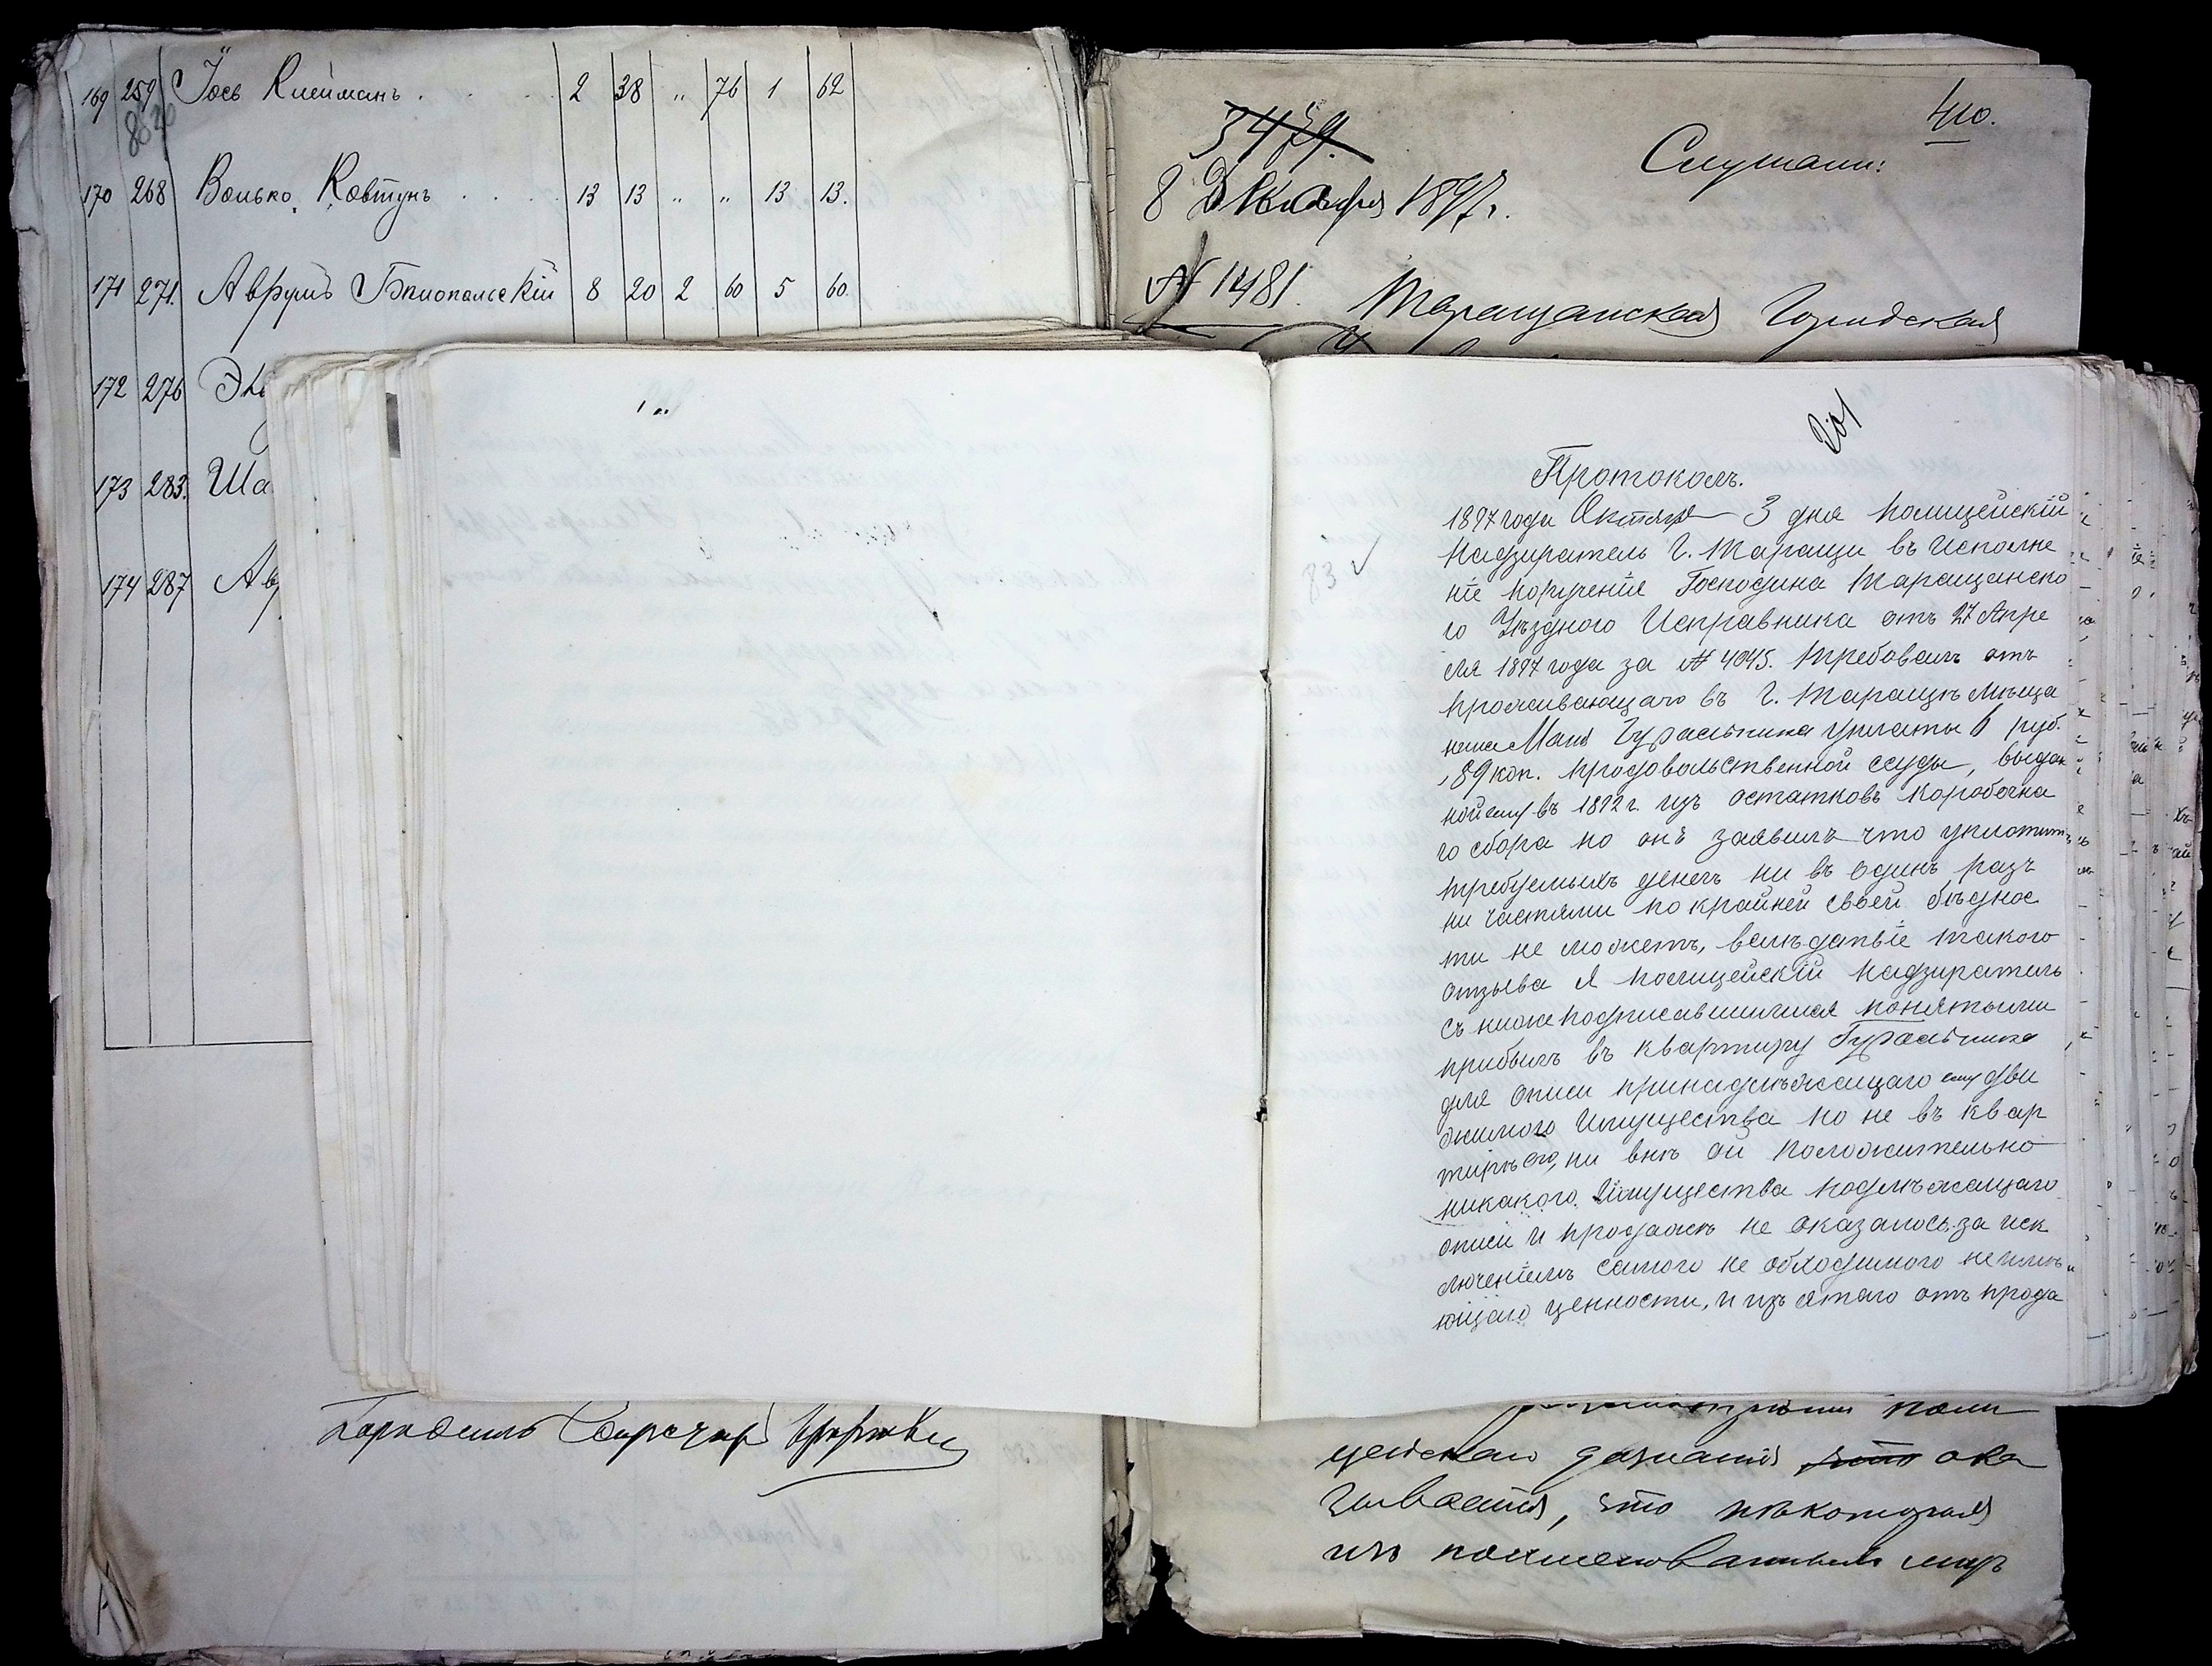 169 259 Іось Клейманъ . . . . 2 38 " 76 1 62
170 268 Волько Ковтунъ . . . . 13 13 " " 13 13.
171 271. Аврумъ Бѣлопольскій 8 20 2 60 5 60.
172 276
173 283. Ша
174 287 Ав
410.
Слушали:
8 Декабря 1897 г.
№ 1481. Таращанская Городская
201
Протоколъ.
83 ✓
1897 года Октября 3 дня Полицейскій
Надзиратель Г. Таращи въ исполне
ніе порученія Господина Таращанско
го Уѣзднаго Исправника отъ 27 Апре
ля 1897 года за № 4045. требовалъ отъ
проживающаго въ Г. Таращѣ мѣща
нина Гуральника уплаты 6 руб.
89 коп. продовольственной ссуды, выдан
ной ему въ 1892 г. изъ остатковъ коробочна
го сбора но онъ заявилъ что уплотить
требуемыхъ денегъ ни въ одинъ разъ
ни частями по крайней своей бѣднос
ти не можетъ, вслѣдствіе такого
отзыва я полицейскій надзиратель
съ нижеподписавшимися понятыми
прибылъ въ квартиру Гуральника
для описи принадлѣжащаго ему дви
жимого имущества но не въ квар
тирѣ его, ни внѣ ой положительно
никакого имущества подлѣжащаго
описи и продажѣ не оказалось за иск
люченіемъ самого не обходимого неимѣ
ющаго ценности, и изъятаго отъ прода
поли
цейскаго дознанія ока
зывается, что нѣкоторыя
изъ поименованныхъ лицъ